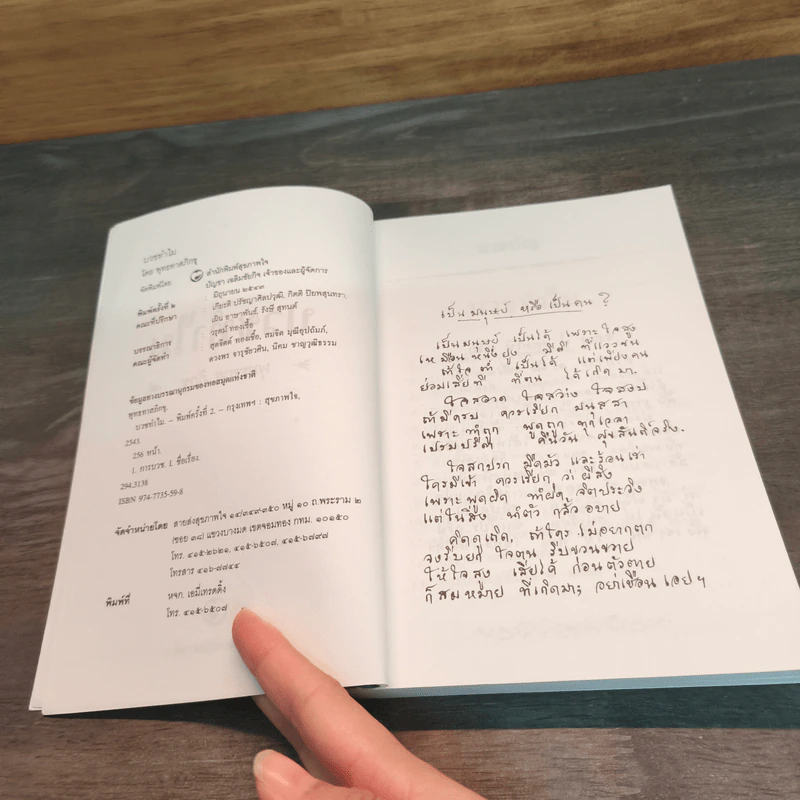 บวชทำไม
โดย พุทธทาสภิกขุ
จัดพิมพ์โดย สำนักพิมพ์สุขภาพใจ
บัญชา เฉลิมชัยกิจ เจ้าของและผู้จัดการ
พิมพ์ครั้งที่ ๒ : มิถุนายน ๒๕๔๓
คณะที่ปรึกษา : เกียรติ ปรัชญาศิลปวุฒิ, กิตติ ปิยพสุนทรา,
เฝิน อาษาพันธ์, รังษี สุทนต์
บรรณาธิการ : วรุตม์ ทองเชื้อ
คณะผู้จัดทำ : สุดจิตต์ ทองเชื้อ, สมจิต มุณีอุปถัมภ์,
ดวงพร จารุชัยวศิน, นิคม ชาญวุฒิธรรม
ข้อมูลทางบรรณานุกรมของหอสมุดแห่งชาติ
พุทธทาสภิกขุ.
บวชทำไม. -- พิมพ์ครั้งที่ 2. -- กรุงเทพฯ : สุขภาพใจ,
2543.
256 หน้า.
1. การบวช. I. ชื่อเรื่อง.
294.3138
ISBN 974-7735-59-8
จัดจำหน่ายโดย สายส่งสุขภาพใจ ๑๔/๓๔๙-๓๕๐ หมู่ ๑๐ ถ.พระราม ๒
(ซอย ๓๘) แขวงบางมด เขตจอมทอง กทม. ๑๐๑๕๐
โทร. ๔๑๕-๒๖๒๑, ๔๑๕-๖๕๐๗, ๔๑๕-๖๗๙๗
โทรสาร ๔๑๖-๗๗๔๔
พิมพ์ที่ หจก. เอมี่เทรดดิ้ง
โทร. ๔๑๕-๖๕๐๗
เป็น มนุษย์ หรือ เป็น คน ?
เป็น มนุษย์ เป็นได้ เพราะ ใจสูง
เหมือน หนึ่ง ยูง มีดี ที่แววขน
ถ้าใจต่ำ เป็นได้ แต่เพียง คน
ย่อมเสียที ที่ตน ได้เกิด มา.
ใจสอาด ใจสว่าง ใจสงบ
ถ้ามีครบ ควรเรียก มนุสสา
เพราะ ทำถูก พูดถูก ทุกเวลา
เปรมปรีดา คืนวัน ศุขสันติ์จริง.
ใจสกปรก มืดมัว และร้อนเร่า
ใครมีเข้า ควรเรียก ว่า ผีสิง
เพราะพูดผิด ทำผิด จิตประวิง
แต่ในสิ่ง นำตัว กลั้ว อบาย
คิดดูเถิด, ถ้าใคร ไม่อยากตก
จงรีบยก ใจตน รีบขวนขวาย
ให้ใจสูง เสียได้ ก่อนตัวตาย
ก็สมหมาย ที่เกิดมา; อย่าเชือน เอย ฯ